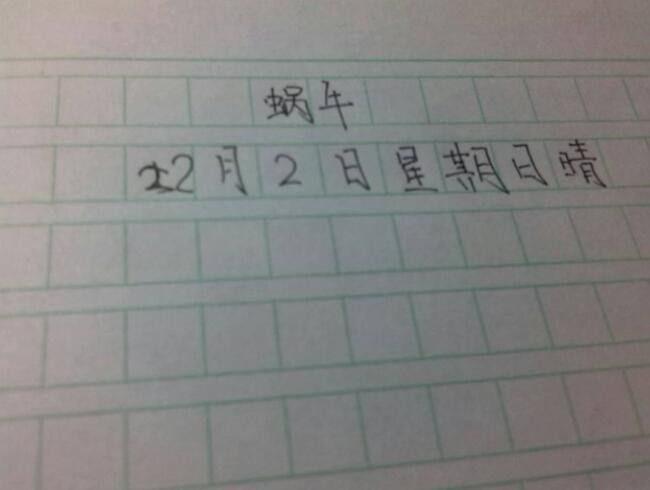 蜗牛
12月2日星期日晴